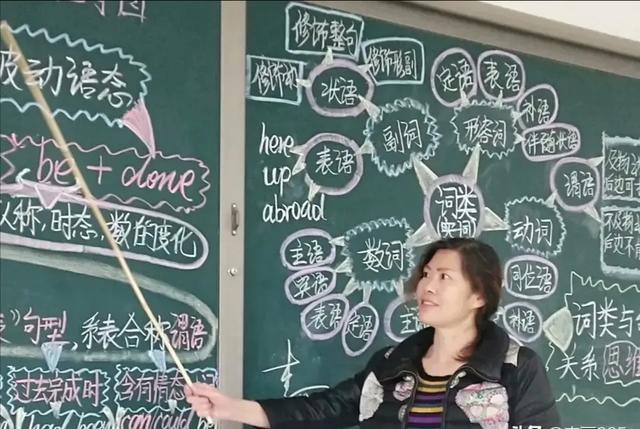 被动语态
be + done
人称,时态,数的变化
句型,
系表合称谓语
过去完成时
含有情态
had been
can/could be
修饰整句
修饰动
修饰形副
状语
表语
副词
here
up
abroad
定语
表语
补语
伴随状语
形容词
词类
实词
谓语
动词
数词
主语
宾语
表语
定语
同位语
补语
词类与
关系
思维
后边可
后边不